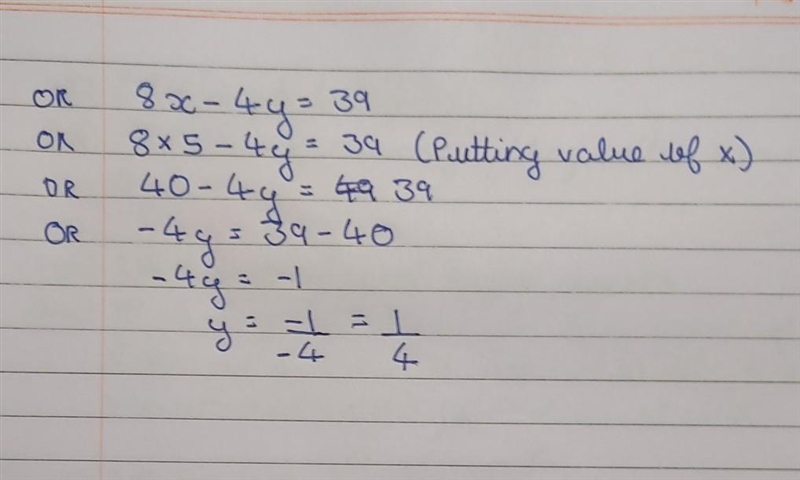 OR 8x - 4y = 39
OR 8 × 5 - 4y = 39 (Putting value of x)
OR 40 - 4y = 49 39
OR -4y = 39 - 40
-4y = -1
y = -1/-4 = 1/4